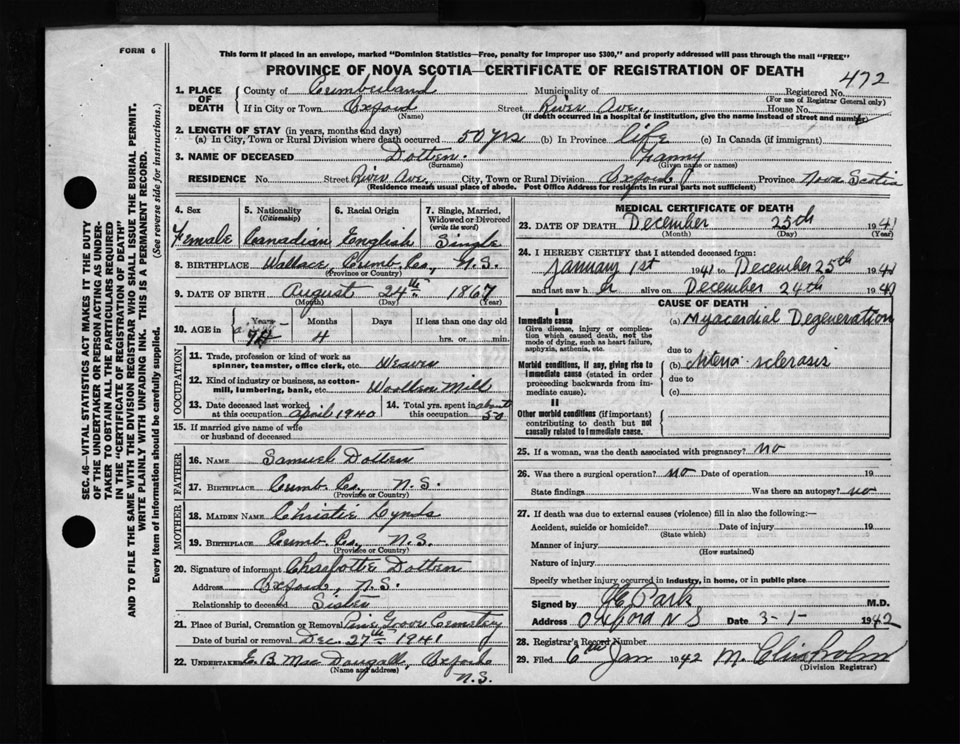 FORM 6
This form if placed in an envelope, marked "Dominion Statistics—Free, penalty for improper use $300," and properly addressed will pass through the mail "FREE"
PROVINCE OF NOVA SCOTIA—CERTIFICATE OF REGISTRATION OF DEATH
472
1. PLACE OF DEATH
County of Cumberland Municipality of Registered No.
(For use of Registrar General only)
If in City or Town Oxford Street River Ave. House No.
(Name) (If death occurred in a hospital or institution, give the name instead of street and number)
2. LENGTH OF STAY (in years, months and days)
(a) In City, Town or Rural Division where death occurred 50 yrs (b) In Province life (c) In Canada (if immigrant)
3. NAME OF DECEASED Dotten Fanny
(Surname) (Given name or names)
RESIDENCE No. Street River Ave. City, Town or Rural Division Oxford Province Nova Scotia
(Residence means usual place of abode. Post Office Address for residents in rural parts not sufficient)
4. Sex Female
5. Nationality (Citizenship) Canadian
6. Racial Origin English
7. Single, Married, Widowed or Divorced (write the word) Single
8. BIRTHPLACE Wallace, Cumb. Co., N.S.
(Province or Country)
9. DATE OF BIRTH August 24th 1867
(Month) (Day) (Year)
10. AGE in Years Months Days If less than one day old
74 4 hrs. or min.
OCCUPATION
11. Trade, profession or kind of work as spinner, teamster, office clerk, etc. Weaver
12. Kind of industry or business, as cotton-mill, lumbering, bank, etc. Woollen Mill
13. Date deceased last worked at this occupation April 1940
14. Total yrs. spent in this occupation about 50
15. If married give name of wife or husband of deceased
FATHER
16. NAME Samuel Dotten
17. BIRTHPLACE Cumb. Co., N.S.
(Province or Country)
MOTHER
18. MAIDEN NAME Christie Lynds
19. BIRTHPLACE Cumb. Co., N.S.
(Province or Country)
20. Signature of informant Charlotte Dotten
Address Oxford, N.S.
Relationship to deceased Sister
21. Place of Burial, Cremation or Removal Pine Grove Cemetery
Date of burial or removal Dec. 27th 1941
22. UNDERTAKER E. B. MacDougall, Oxford
(Name and address)
N.S.
MEDICAL CERTIFICATE OF DEATH
23. DATE OF DEATH December 25th 1941
(Month) (Day) (Year)
24. I HEREBY CERTIFY that I attended deceased from:
January 1st 1941 to December 25th 1941
and last saw her alive on December 24th 1941
CAUSE OF DEATH
I
Immediate cause
Give disease, injury or complication which caused death, not the mode of dying, such as heart failure, asphyxia, asthenia, etc.
(a) Myocardial Degeneration
due to
Morbid conditions, if any, giving rise to immediate cause (stated in order proceeding backwards from immediate cause).
(b) Arterio sclerosis
due to
(c)
II
Other morbid conditions (if important) contributing to death but not causally related to immediate cause.
25. If a woman, was the death associated with pregnancy? no
26. Was there a surgical operation? no Date of operation 19
State findings Was there an autopsy? no
27. If death was due to external causes (violence) fill in also the following:—
Accident, suicide or homicide? Date of injury 19
(State which)
Manner of injury
(How sustained)
Nature of injury
Specify whether injury occurred in industry, in home, or in public place
Signed by Park M.D.
Address Oxford N S Date 3-1- 1942
28. Registrar's Record Number
29. Filed 6th Jan 1942 M. Chisholm
(Division Registrar)
SEC. 46—VITAL STATISTICS ACT MAKES IT THE DUTY
OF THE UNDERTAKER OR PERSON ACTING AS UNDERTAKER TO OBTAIN ALL THE PARTICULARS REQUIRED
IN THE "CERTIFICATE OF REGISTRATION OF DEATH"
AND TO FILE THE SAME WITH THE DIVISION REGISTRAR WHO SHALL ISSUE THE BURIAL PERMIT.
WRITE PLAINLY WITH UNFADING INK. THIS IS A PERMANENT RECORD.
Every item of information should be carefully supplied. (See reverse side for instructions.)